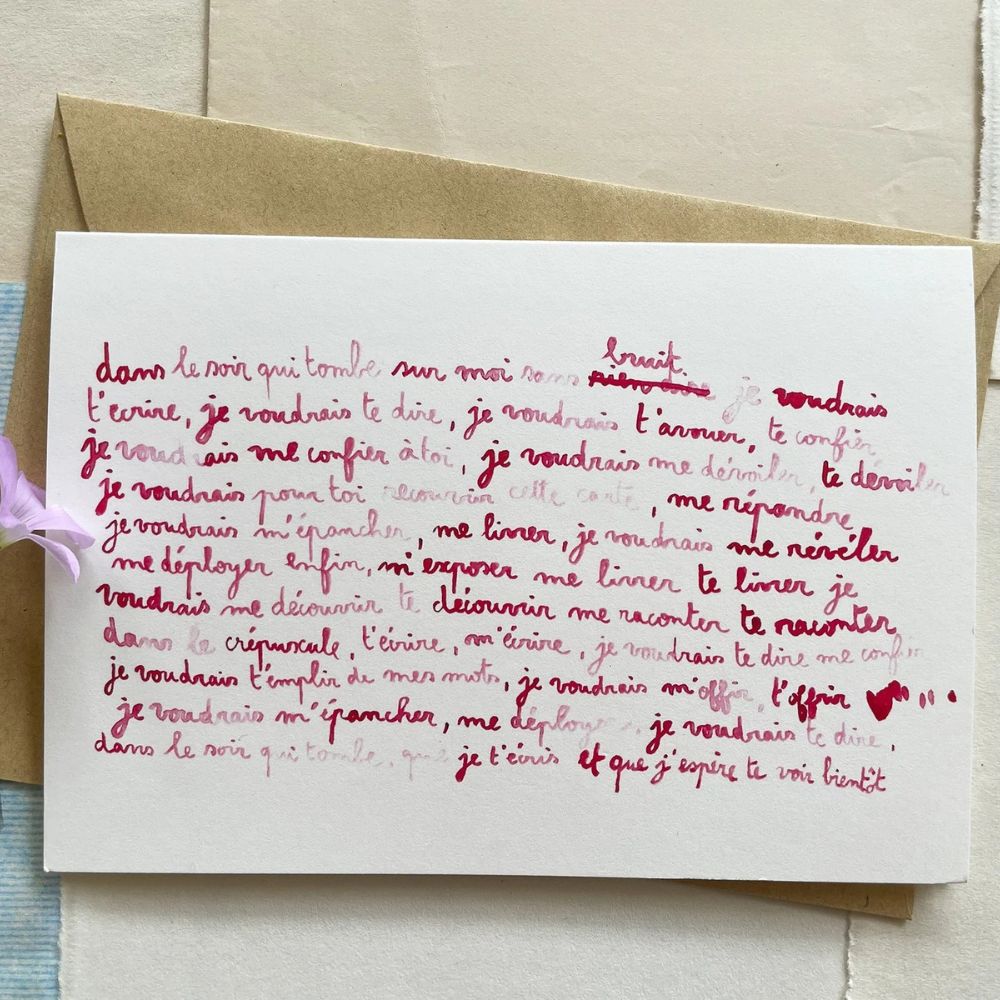 dans le soir qui tombe sur moi sans bruit je voudrais
t'écrire, je voudrais te dire, je voudrais t'avouer, te confier
je voudrais me confier à toi, je voudrais me dévoiler, te dévoiler
je voudrais pour toi recouvrir cette carte, me répandre
je voudrais m'épancher, me livrer, je voudrais me révéler
me déployer enfin, m'exposer me livrer te livrer je
voudrais me découvrir te découvrir me raconter te raconter
dans le crépuscule, t'écrire, m'écrire, je voudrais te dire me confier
je voudrais t'emplir de mes mots, je voudrais m'offrir, t'offrir
je voudrais m'épancher, me déployer, je voudrais te dire,
dans le soir qui tombe, que je t'écris et que j'espère te voir bientôt